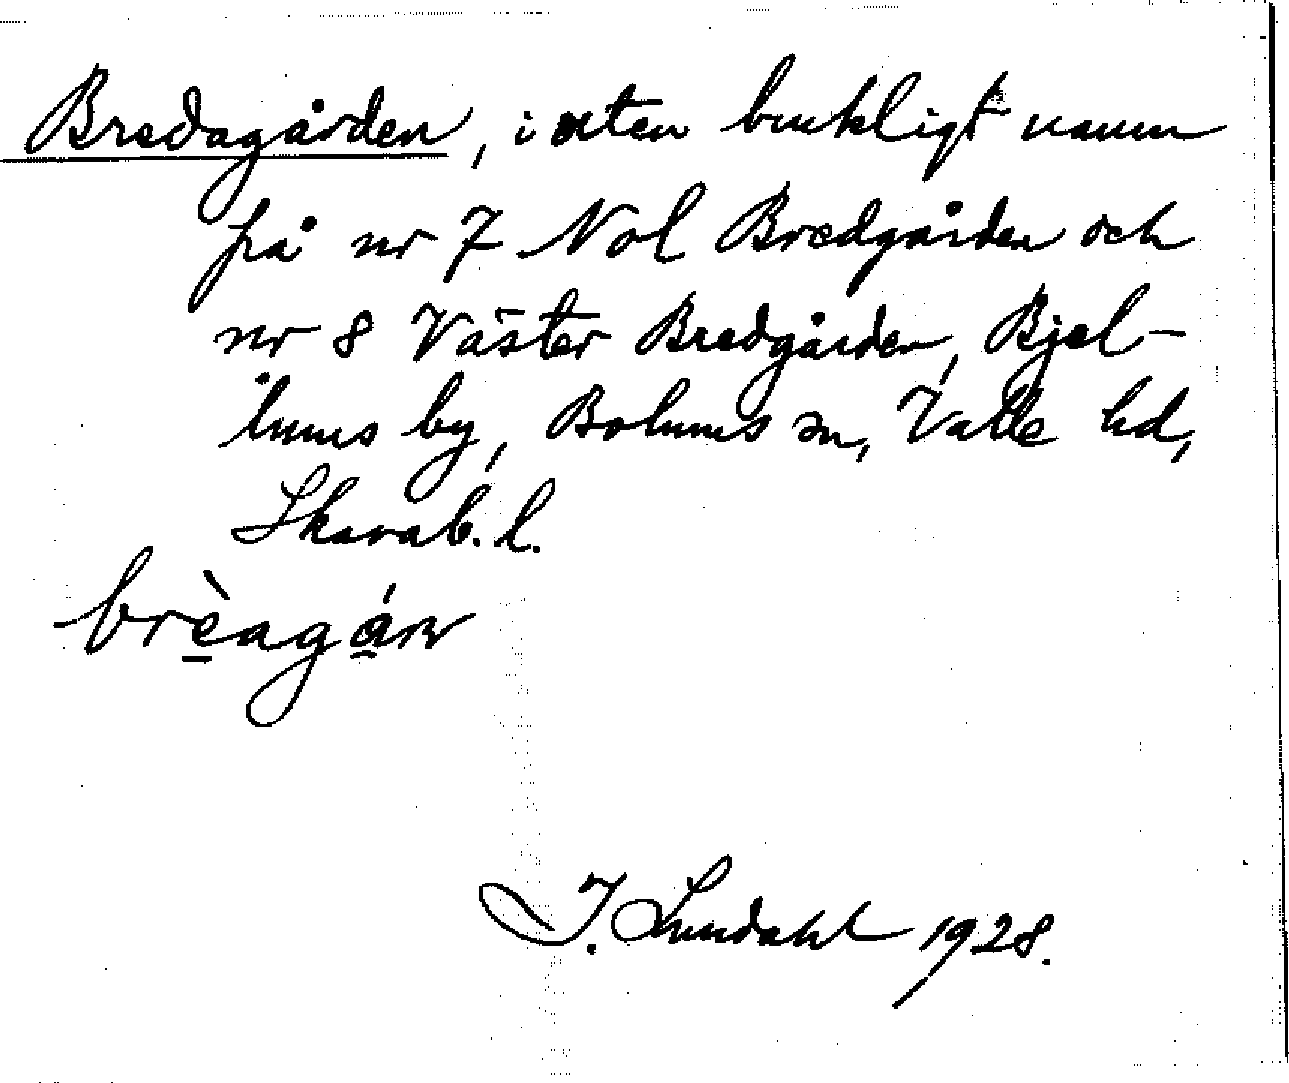 Bredagården, i orten brukligt namn
på nr 7 Nol Bredgården och
nr 8 Väster Bredgården, Bjel-
lums by, Bolums sn, Valle hd,
Skarab. l.
brèagár
I. Lundahl 1928.